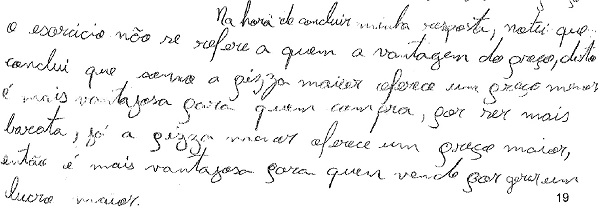 Na hora de concluir minha resposta, notei que
o exercício não se refere a quem a vantagem do preço, disto
conclui que como a pizza maior oferece um preço menor
é mais vantajosa para quem compra, por ser mais
barata, já a pizza menor oferece um preço maior,
então é mais vantajosa para quem vende por gerar um
lucro maior.
19